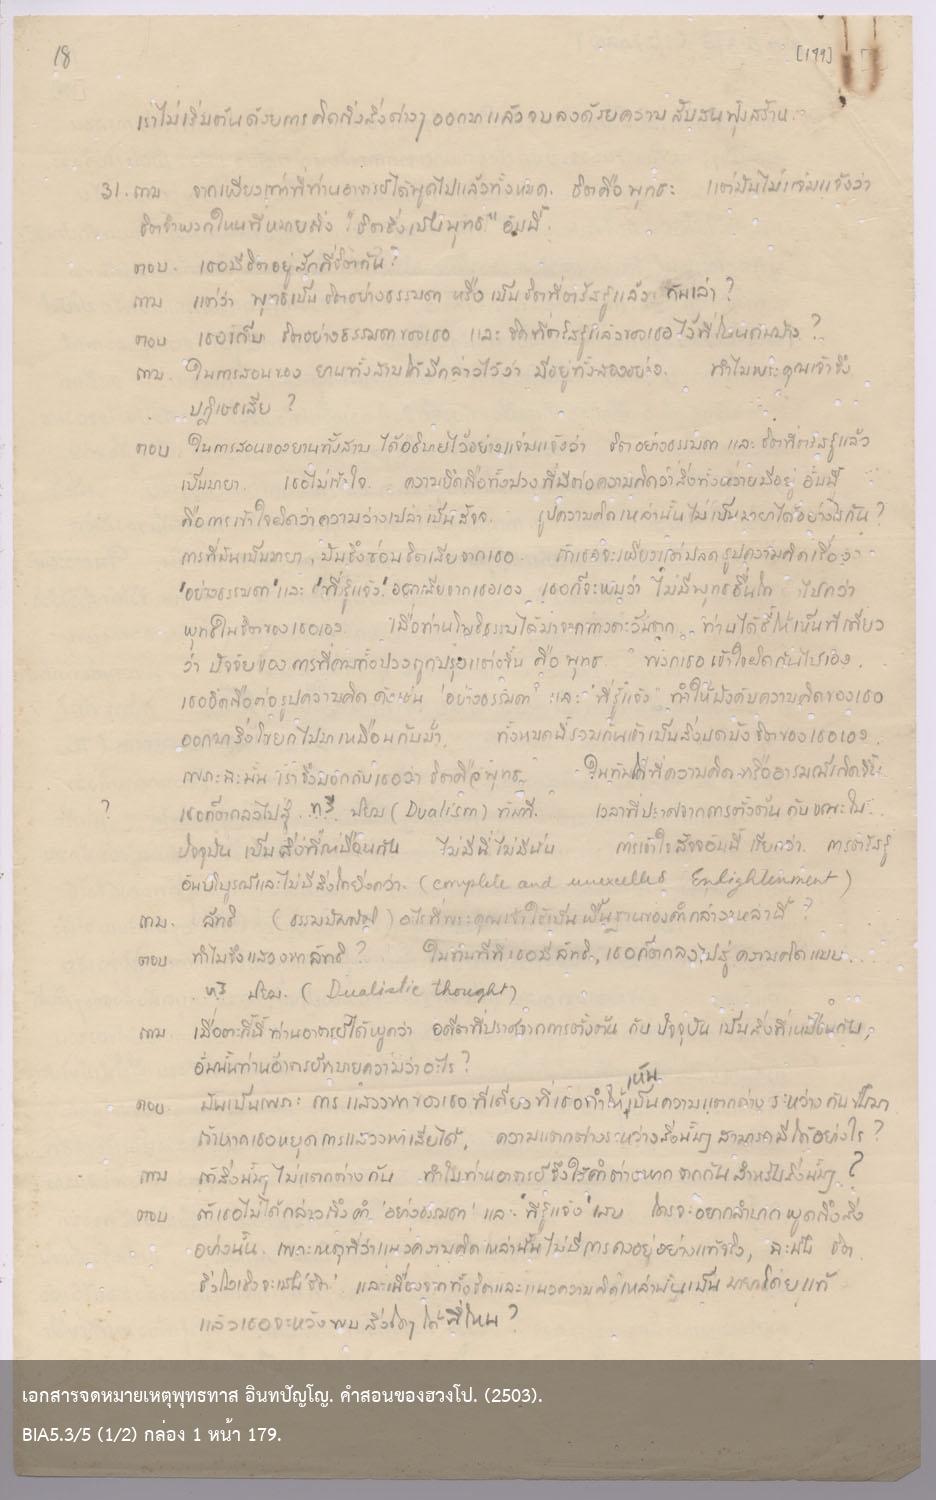 18
[179]
เราไม่เริ่มต้นด้วยการคิดถึงสิ่งต่างๆ ออกมาแล้วจบลงด้วยความสับสนฟุ้งสร้าน.
31. ถาม จากเพียงเท่าที่ท่านอาจารย์ได้พูดไปแล้วทั้งหมด. จิตคือพุทธะ แต่มันไม่แจ่มแจ้งว่า
จิตจำพวกไหนที่หมายถึง "จิตซึ่งเป็นพุทธะ" อันนี้.
ตอบ. เธอมีจิตอยู่สักกี่จิตกัน?
ถาม แต่ว่า พุทธะเป็น จิตอย่างธรรมดา หรือ เป็นจิตที่ตรัสรู้แล้ว กันเล่า?
ตอบ เธอเก็บ จิตอย่างธรรมดาของเธอ และ จิตที่ตรัสรู้แล้วของเธอ ไว้ที่ไหนกันบ้าง?
ถาม. ในการสอนของ ยานทั้งสามได้มีกล่าวไว้ว่า มีอยู่ทั้งสองอย่าง. ทำไมพระคุณเจ้าจึง
ปฏิเสธเสีย ?
ตอบ ในการสอนของยานทั้งสาม ได้อธิบายไว้อย่างแจ่มแจ้งว่า จิตอย่างธรรมดา และ จิตที่ตรัสรู้แล้ว
เป็นมายา. เธอไม่เข้าใจ. ความยึดถือทั้งปวงที่มีต่อความคิดว่าสิ่งทั้งหลายมีอยู่ อันนี้
คือการเข้าใจผิดว่าความว่างเปล่าเป็นสัจจะ. รูปความคิดเหล่านั้นไม่เป็นมายาได้อย่างไรกัน?
การที่มันเป็นมายา, มันจึงซ่อนจิตเสียจากเธอ. ถ้าเธอจะเพียงแต่ปลดรูปความคิดเรื่อง
"อย่างธรรมดา" และ "ที่รู้แจ้ง" ออกเสียจากเธอเอง เธอก็จะพบว่า ไม่มีพุทธะอื่นใด ไปกว่า
พุทธะในจิตของเธอเอง. เมื่อท่านโพธิธรรมได้มาจากทางตะวันตก ท่านได้ชี้ให้เห็นทีเดียว
ว่า ปัจจัยของการที่คนทั้งปวงถูกปรุงแต่งขึ้น คือ พุทธะ. พวกเธอเข้าใจผิดกันไปเอง,
เธอยึดถือต่อรูปความคิด ดังเช่น "อย่างธรรมดา" และ "ที่รู้แจ้ง" ทำให้บังคับความคิดของเธอ
ออกมาซึ่งโขยกไปมาเหมือนกับม้า. ทั้งหมดนี้รวมกันเข้าเป็นสิ่งบดบังจิตของเธอเอง.
เพราะฉะนั้น เราจึงบอกกับเธอว่า จิตคือพุทธะ. ในทันใดที่ความคิด หรืออารมณ์เกิดขึ้น
? เธอก็ตกลงไปสู่ ทวินิยม (Dualism) ทันที. เวลาที่ปราศจากการตั้งต้น กับ ขณะใน
ปัจจุบัน เป็นสิ่งที่เหมือนกัน ไม่มีนี่ไม่มีนั่น การเข้าใจสัจจอันนี้ เรียกว่า การตรัสรู้
อันบริบูรณ์และไม่มีสิ่งใดยิ่งกว่า. (complete and unexcelled Enlightenment)
ถาม. ลัทธิ (ธรรมบัญญัติ) อะไรที่พระคุณเจ้าใช้เป็นพื้นฐานของคำกล่าวเหล่านี้ ?
ตอบ ทำไมจึงแสวงหาลัทธิ? ในทันทีที่เธอมีลัทธิ, เธอก็ตกลงไปสู่ความคิดแบบ
ทวินิยม. (Dualistic thought)
ถาม เมื่อตะกี้นี้ ท่านอาจารย์ได้พูดว่า อดีตที่ปราศจากการตั้งต้น กับ ปัจจุบัน เป็นสิ่งที่เหมือนกัน,
อันนั้นท่านอาจารย์หมายความว่าอะไร?
ตอบ. มันเป็นเพราะ การแสวงหาของเธอทีเดียวที่เธอทำให้เห็นเป็นความแตกต่างระหว่างกันขึ้นมา
ถ้าหากเธอหยุดการแสวงหาเสียได้, ความแตกต่างระหว่างสิ่งนั้นๆ สามารถมีได้อย่างไร?
ถาม ถ้าสิ่งนั้นๆ ไม่แตกต่างกัน ทำไมท่านอาจารย์จึงใช้คำต่างหากจากกันสำหรับสิ่งนั้นๆ ?
ตอบ ถ้าเธอไม่ได้กล่าวถึงคำ 'อย่างธรรมดา' และ 'ที่รู้แจ้ง' แล้ว ใครจะอยากลำบากพูดถึงสิ่ง
อย่างนั้น. เพราะเหตุที่ว่าแนวความคิดเหล่านั้นไม่มีการคงอยู่อย่างแท้จริง, ฉะนั้น จิต
จึงไม่เชิงจะเป็น 'จิต' และเนื่องจากทั้งจิตและแนวความคิดเหล่านั้นเป็นมายาโดยแท้
แล้วเธอจะหวังพบสิ่งใดๆ ได้ที่ไหน?
เอกสารจดหมายเหตุพุทธทาส อินทปัญโญ. คำสอนของฮวงโป. (2503).
BIA5.3/5 (1/2) กล่อง 1 หน้า 179.